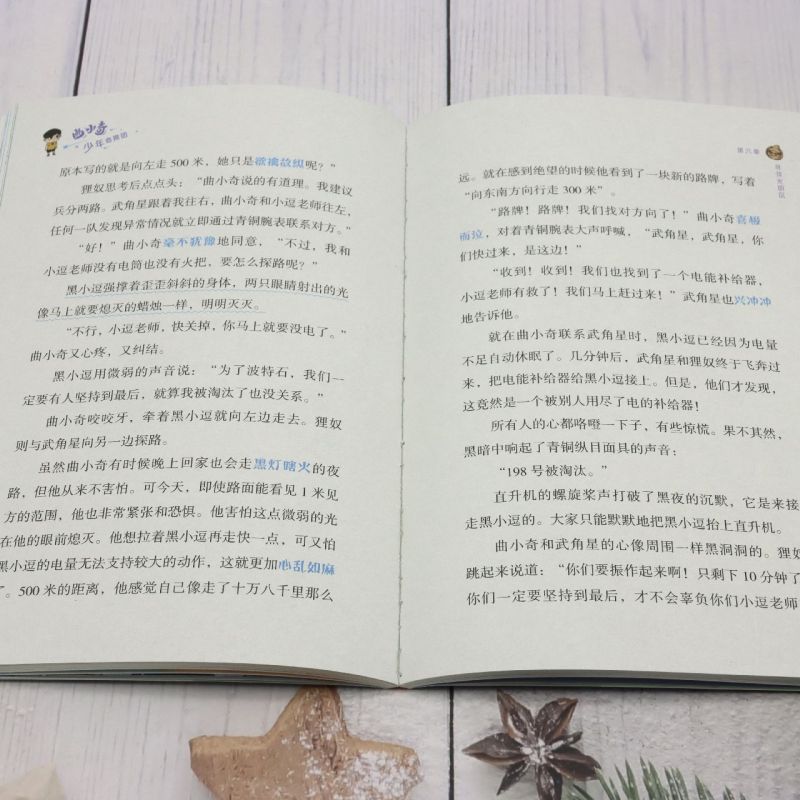 曲小奇
少年
原本写的就是向左走 500 米，她只是欲擒故纵呢？”
狸奴思考后点点头：“曲小奇说的有道理。我建议
兵分两路。武角星跟着我往右，曲小奇和小逗老师往左，
任何一队发现异常情况就立即通过青铜腕表联系对方。”
“好！”曲小奇毫不犹豫地同意，“不过，我和
小逗老师没有电筒也没有火把，要怎么探路呢？”
黑小逗强撑着歪歪斜斜的身体，两只眼睛射出的光
像马上就要熄灭的蜡烛一样，明明灭灭。
“不行，小逗老师，快关掉，你马上就要没电了。”
曲小奇又心疼，又纠结。
黑小逗用微弱的声音说：“为了波特石，我们一
定要有人坚持到最后，就算我被淘汰了也没关系。”
曲小奇咬咬牙，牵着黑小逗就向左边走去。狸奴
则与武角星向另一边探路。
虽然曲小奇有时候晚上回家也会走黑灯瞎火的夜
路，但他从来不害怕。可今天，即使路面能看见 1 米见
方的范围，他也非常紧张和恐惧。他害怕这点微弱的光
在他的眼前熄灭。他想拉着黑小逗再走快一点，可又怕
黑小逗的电量无法支持较大的动作，这就更加心乱如麻
了。500 米的距离，他感觉自己像走了十万八千里那么
第六章
远。就在感到绝望的时候他看到了一块新的路牌，写着
“向东南方向行走 300 米”。
“路牌！路牌！我们找对方向了！”曲小奇喜极
而泣，对着青铜腕表大声呼喊，“武角星，武角星，你
们快过来，是这边！”
“收到！收到！我们也找到了一个电能补给器，
小逗老师有救了！我们马上赶过来！”武角星也兴冲冲
地告诉他。
就在曲小奇联系武角星时，黑小逗已经因为电量
不足自动休眠了。几分钟后，武角星和狸奴终于飞奔过
来，把电能补给器给黑小逗接上。但是，他们才发现，
这竟然是一个被别人用尽了电的补给器！
所有人的心都咯噔一下子，有些惊慌。果不其然，
黑暗中响起了青铜纵目面具的声音：
“198 号被淘汰。”
直升机的螺旋桨声打破了黑夜的沉默，它是来接
走黑小逗的。大家只能默默地把黑小逗抬上直升机。
曲小奇和武角星的心像周围一样黑洞洞的。狸奴
跳起来说道：“你们要振作起来啊！只剩下 10 分钟了
你们一定要坚持到最后，才不会辜负你们小逗老师